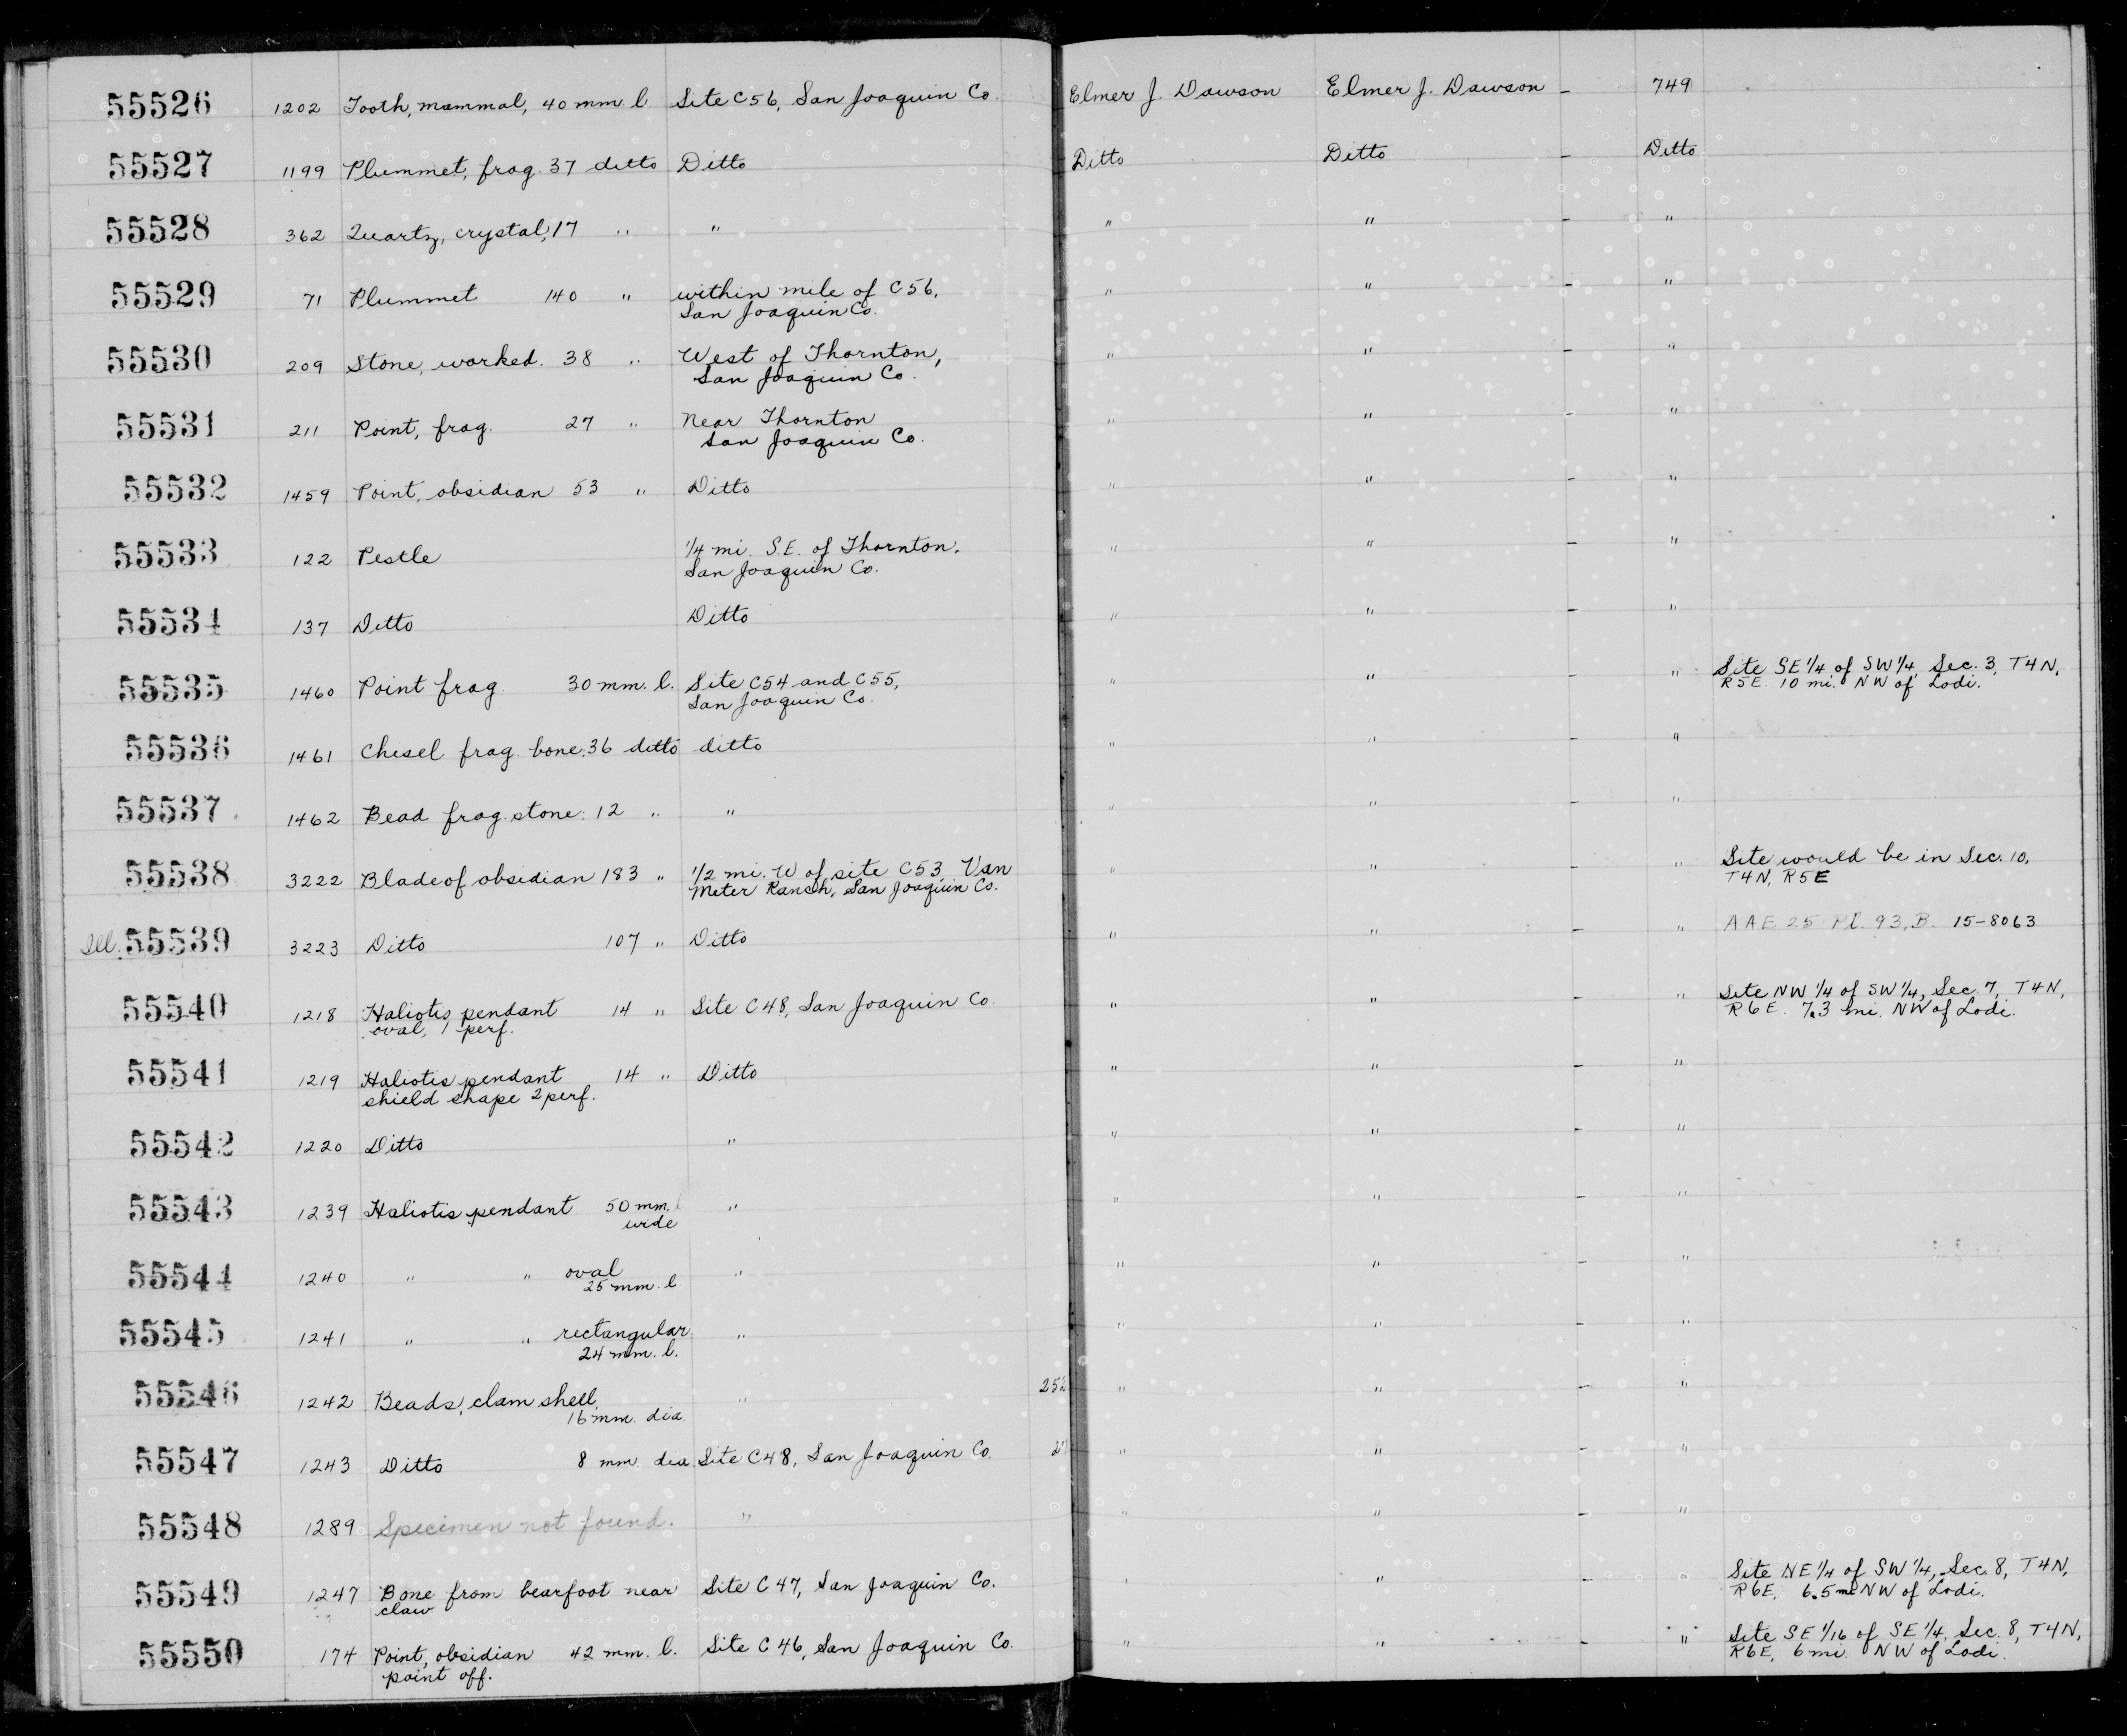 55526 1202 Tooth, mammal, 40 mm l Site C56, San Joaquin Co. Elmer J. Dawson Elmer J. Dawson - 749
55527 1199 Plummet, frag. 37 ditto Ditto Ditto Ditto - Ditto
55528 362 Quartz, crystal, 17 " " " " - "
55529 71 Plummet 140 " within mile of C56, " " - "
San Joaquin Co.
55530 209 Stone, worked. 38 " West of Thornton, " " - "
San Joaquin Co.
55531 211 Point, frag. 27 " Near Thornton " " - "
San Joaquin Co.
55532 1459 Point, obsidian 53 " Ditto " " - "
55533 122 Pestle 1/4 mi. S.E. of Thornton, " " - "
San Joaquin Co.
55534 137 Ditto Ditto " " - "
55535 1460 Point frag 30 mm. l. Site C54 and C55, " " - " Site SE 1/4 of SW 1/4, Sec. 3, T4N,
San Joaquin Co. R5E. 10 mi. NW of Lodi.
55536 1461 Chisel frag. bone. 36 ditto ditto " " - "
55537 1462 Bead frag. stone. 12 " " " " - "
55538 3222 Blade of obsidian 183 " 1/2 mi. W of site C53 Van " " - " Site would be in Sec. 10,
Meter Ranch, San Joaquin Co. T4N, R5E
Ill. 55539 3223 Ditto 107 " Ditto " " - " AAE 25 Pl. 93, B. 15-8063
55540 1218 Haliotis pendant 14 " Site C48, San Joaquin Co. " " - " Site NW 1/4 of SW 1/4, Sec. 7, T4N,
oval, 1 perf. R6E. 7.3 mi. NW of Lodi.
55541 1219 Haliotis pendant 14 " Ditto " " - "
shield shape 2 perf.
55542 1220 Ditto " " " - "
55543 1239 Haliotis pendant 50 mm. l " " " - "
wide
55544 1240 " " oval " " " - "
25 mm. l
55545 1241 " " rectangular " " " - "
24 mm. l.
55546 1242 Beads, clam shell, " 252 " " - "
16 mm. dia.
55547 1243 Ditto 8 mm. dia. Site C48, San Joaquin Co. " " - "
55548 1289 Specimen not found. " " " - "
55549 1247 Bone from bearfoot near Site C47, San Joaquin Co. " " - " Site NE 1/4 of SW 1/4, Sec. 8, T4N,
claw R6E, 6.5 mi NW of Lodi.
55550 174 Point, obsidian 42 mm. l. Site C46, San Joaquin Co. " " - " Site SE 1/16 of SE 1/4, Sec. 8, T4N,
point off. R6E, 6 mi. NW of Lodi.